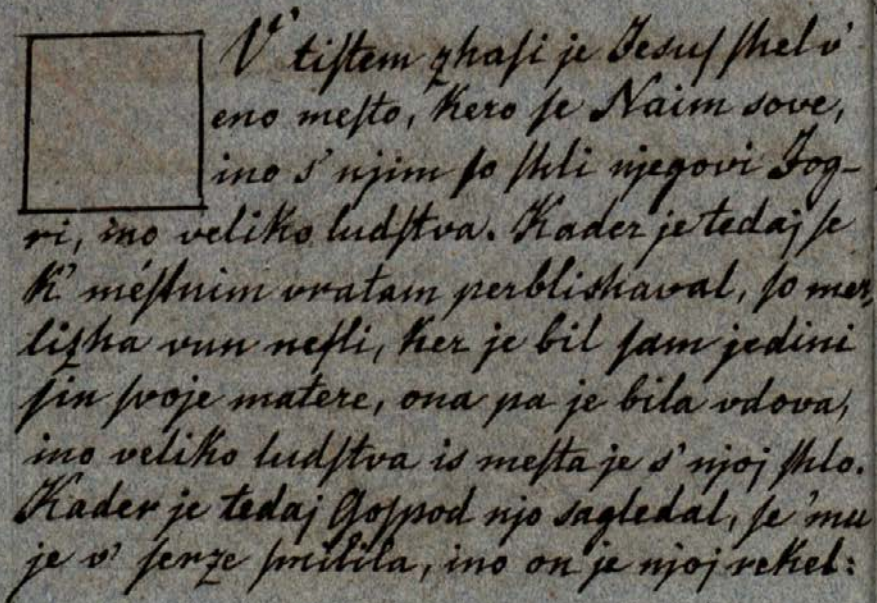 V' tiſtem zhaſi je Jesuſ ſhel v'
eno meſto, kero ſe Naim sove,
ino s' njim ſo ſhli njegovi Jog-
ri, ino veliko ludſtva. Kader je tedaj ſe
k' méſtnim vratam perblishaval, ſo mer-
lizha vun neſli, ker je bil ſam jedini
ſin ſvoje matere, ona pa je bila vdova,
ino veliko ludſtva is meſta je s' njoj ſhlo.
Kader je tedaj Goſpod njo sagledal, ſe mu
je v' ſerze ſmilila, ino on je njoj rekel: